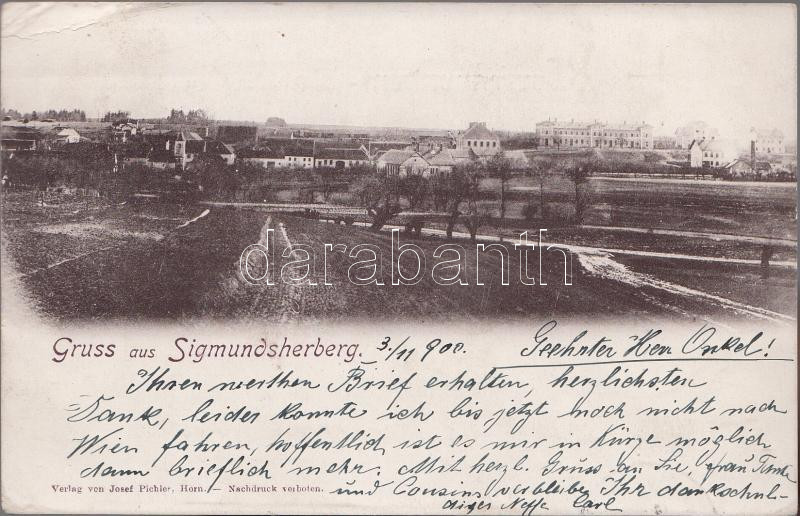 darabanth
Gruss aus Sigmundsherberg. 3./11 900. Geehrter Herr Onkel!
Ihren werthen Brief erhalten, herzlichsten
Dank, leider konnte ich bis jetzt noch nicht nach
Wien fahren, hoffentlich ist es mir in Kürze möglich
dann brieflich mehr. Mit herzl. Gruss an Sie, Frau Tante
und Cousins verbleibe Ihr dankschul-
diger Neffe Carl
Verlag von Josef Pichler, Horn. – Nachdruck verboten.